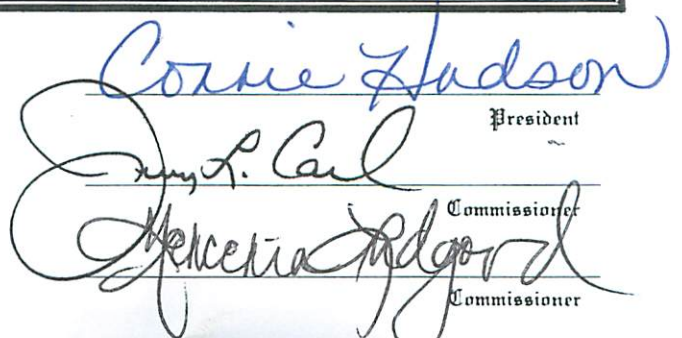 Connie Hudson
President
Jerry L. Carl
Commissioner
Merceria Ludgood
Commissioner